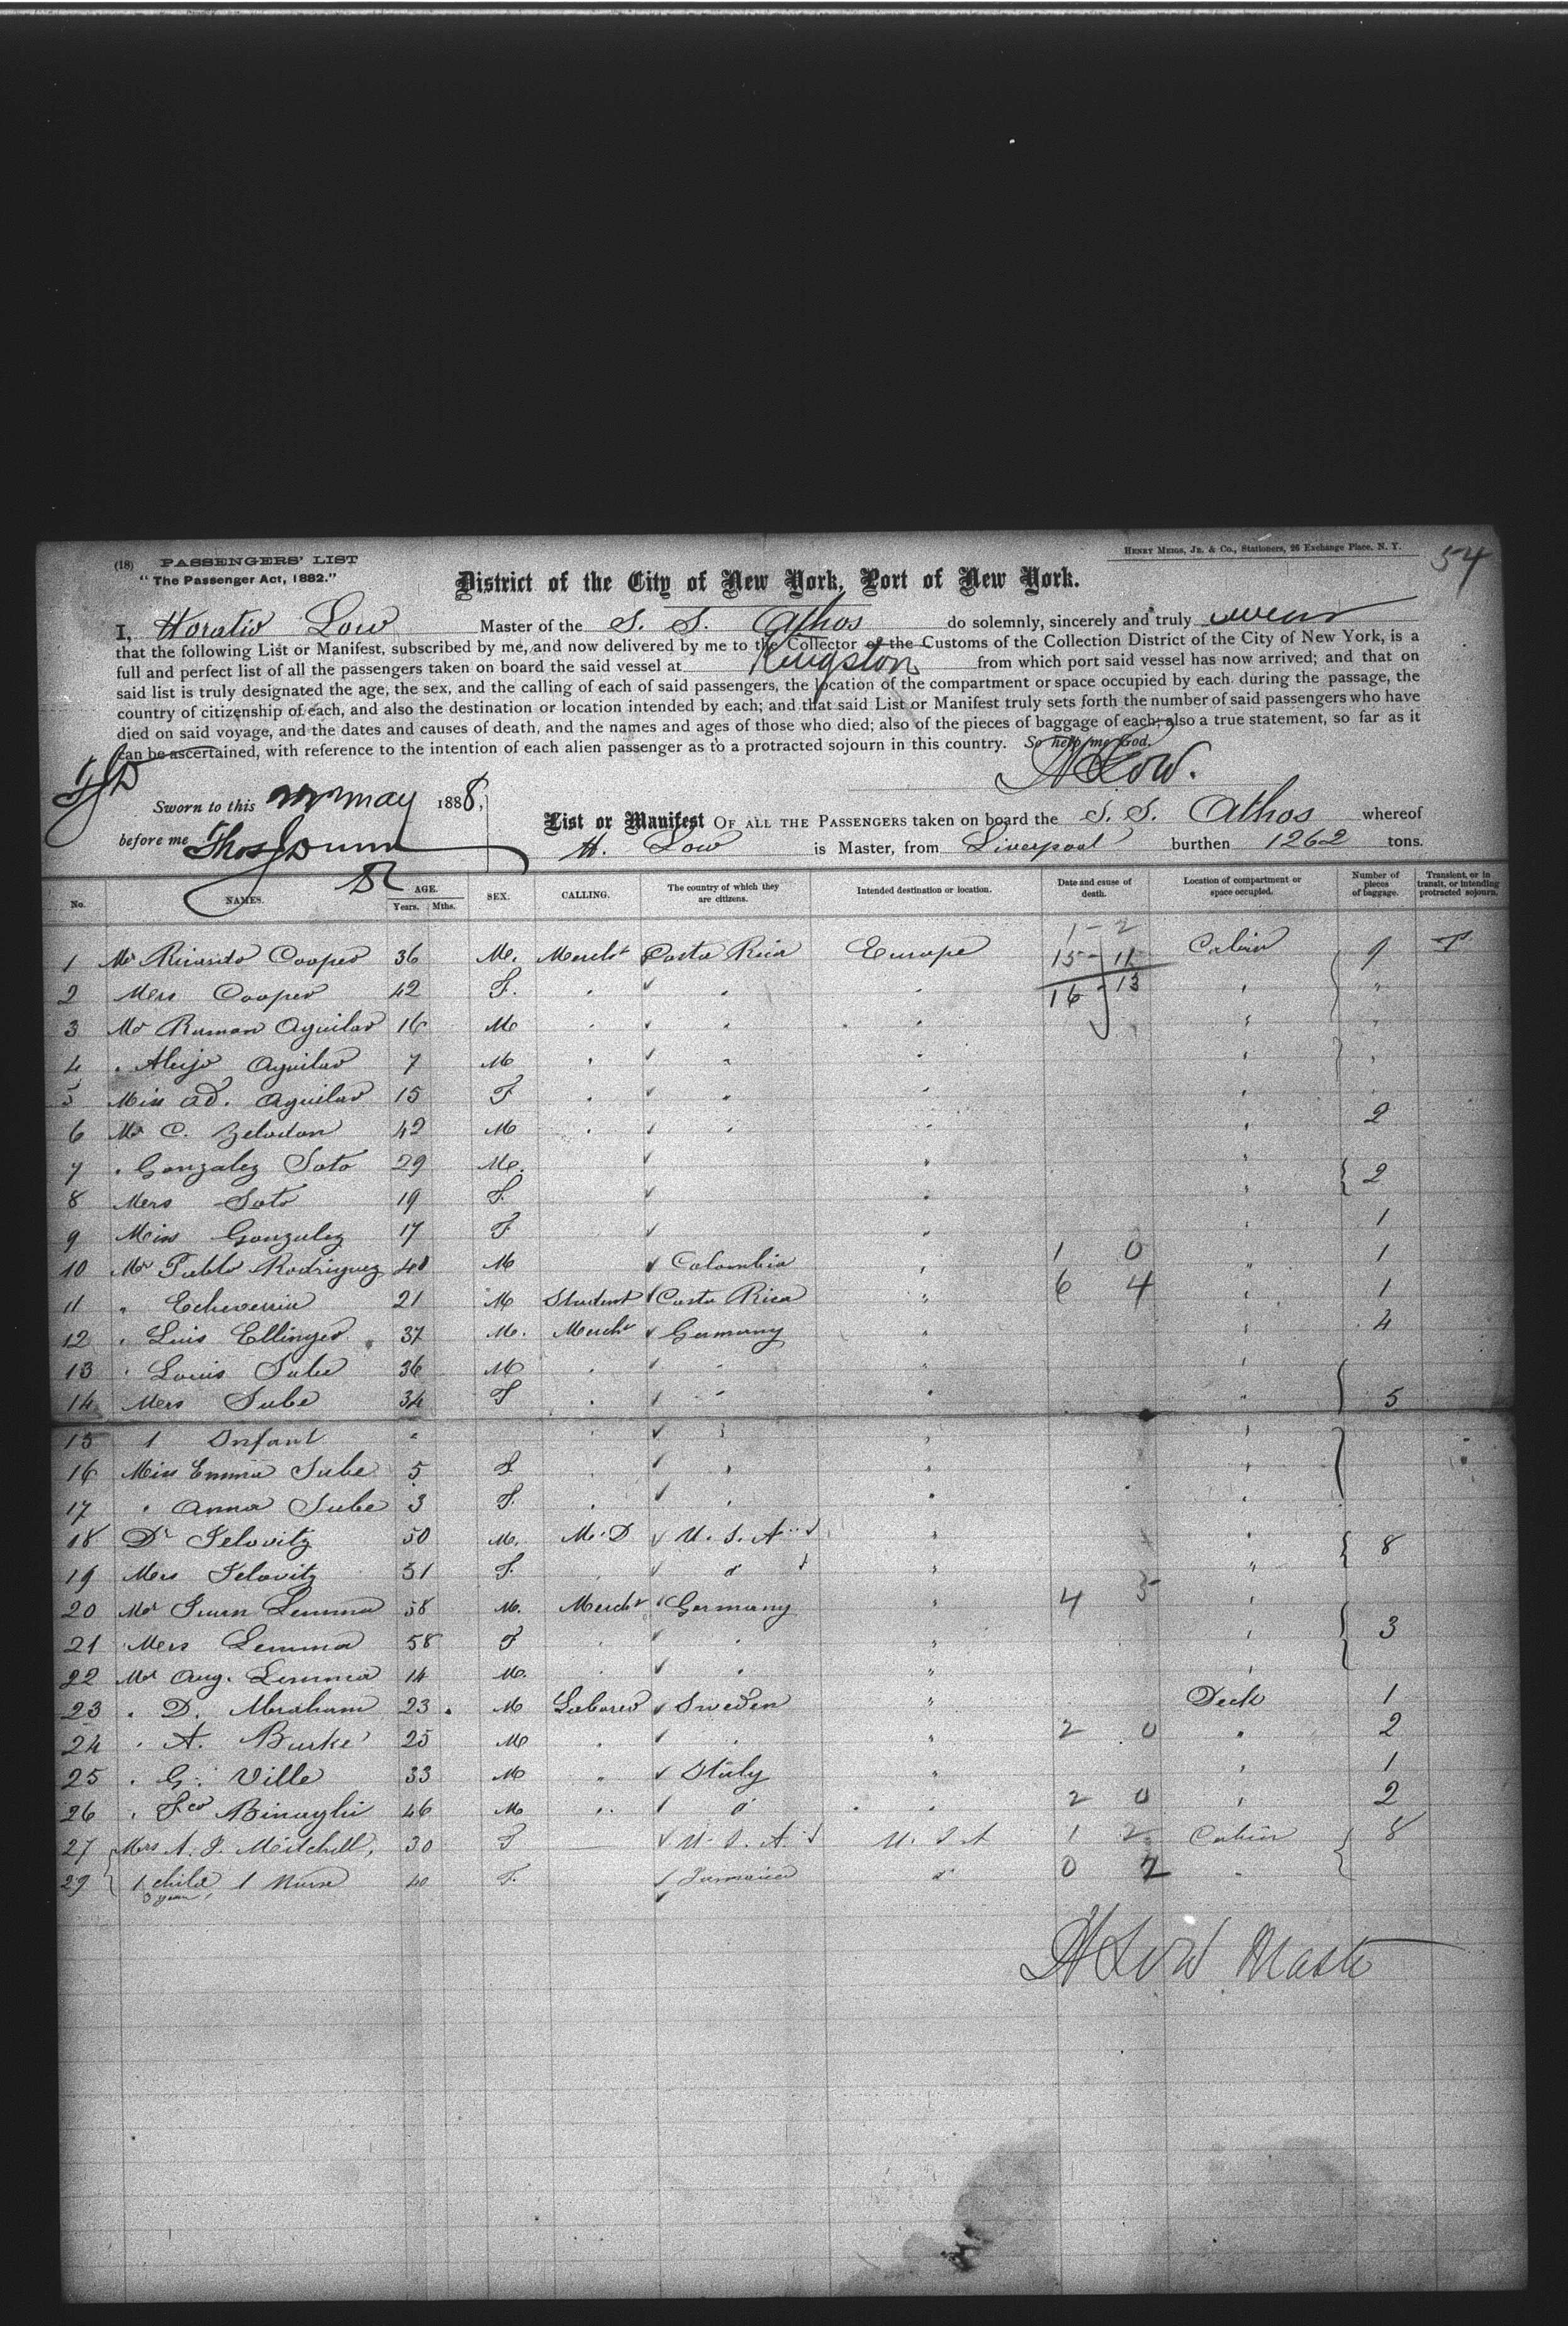 (18) PASSENGERS' LIST
"The Passenger Act, 1882."
HENRY MEIGS, JR. & CO., Stationers, 26 Exchange Place, N. Y.
54
District of the City of New York, Port of New York.
I, Horatio Low Master of the S. S. Athos do solemnly, sincerely and truly swear
that the following List or Manifest, subscribed by me, and now delivered by me to the Collector of the Customs of the Collection District of the City of New York, is a
full and perfect list of all the passengers taken on board the said vessel at Kingston from which port said vessel has now arrived; and that on
said list is truly designated the age, the sex, and the calling of each of said passengers, the location of the compartment or space occupied by each during the passage, the
country of citizenship of each, and also the destination or location intended by each; and that said List or Manifest truly sets forth the number of said passengers who have
died on said voyage, and the dates and causes of death, and the names and ages of those who died; also of the pieces of baggage of each; also a true statement, so far as it
can be ascertained, with reference to the intention of each alien passenger as to a protracted sojourn in this country. So help me God.
H Low.
Sworn to this may 1888,
before me Thos J Dunn
List or Manifest OF ALL THE PASSENGERS taken on board the S. S. Athos whereof
H. Low is Master, from Liverpool burthen 1262 tons.
No. NAMES. AGE. Years. Mths. SEX. CALLING. The country of which they are citizens. Intended destination or location. Date and cause of death. Location of compartment or space occupied. Number of pieces of baggage. Transient, or in transit, or intending protracted sojourn.
1 - 2
1 Mr Ricardo Cooper 36 M. Mercht Costa Rica Europe 15 - 11 Cabin 9 T
2 Mrs Cooper 42 F. " " 16 - 13 " "
3 Mr Ramon Aguilar 16 M " " " "
4 " Alejo Aguilar 7 M " " " "
5 Miss Ad. Aguilar 15 F " " " "
6 Mr C. Zeledon 42 M " " " " 2
7 " Gonzalez Soto 29 M. " " 2
8 Mrs Soto 19 F. " "
9 Miss Gonzalez 17 F " " 1
10 Mr Pablo Rodriguez M Colombia " 1 0 " 1
11 " Echeverria 21 M Student Costa Rica " 6 4 " 1
12 " Luis Ellinger 37 M. Mercht Germany " " 4
13 " Louis 36 M " " " "
14 Mrs 34 F " " " " 5
15 1 Infant " " " " "
16 Miss Emma 5 F " " " "
17 " Anna 3 F. " " " "
18 Dr 50 M. M. D U. S. A " "
19 Mrs 51 F. " " " " 8
20 Mr Lemma 58 M. Mercht Germany " 4 5 "
21 Mrs Lemma 58 F " " " " 3
22 Mr Aug. Lemma 14 M. " " " "
23 " D. Abraham 23 M Laborer Sweden " Deck 1
24 " A. Burke 25 M " " " 2 0 " 2
25 " G. Ville 33 M " Italy " " 1
26 " Fco Binaghi 46 M " " " 2 0 " 2
27 Mrs A. J. Mitchell, 30 F U. S. A U. S A 1 2 Cabin 8
29 1 child 1 Nurse 40 F. Jamaica " 0 "
3 years
H Low Master